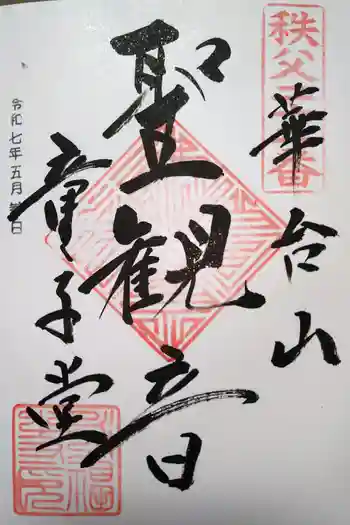 秩父二二番
華台山
聖観音
童子堂
令和七年五月吉日